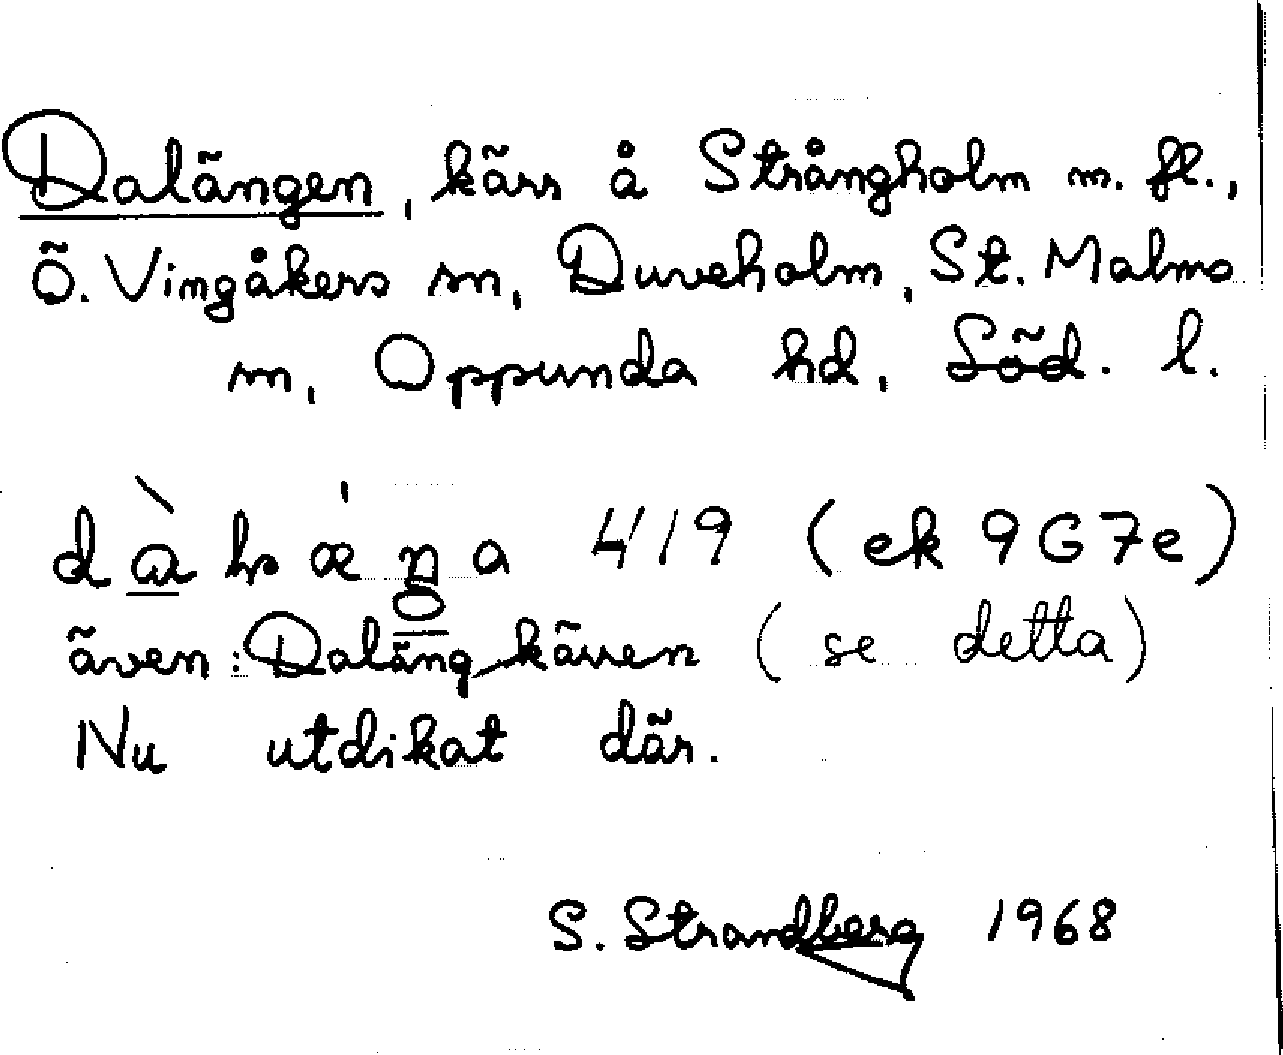 Dalängen, kärr å Strångholm m. fl.,
Ö. Vingåkers sn, Duveholm, St. Malms
sn, Oppunda hd, Söd. l.
419 (ek 9G7e)
även: Dalängkärren (se detta)
Nu utdikat där.
S. Strandberg 1968